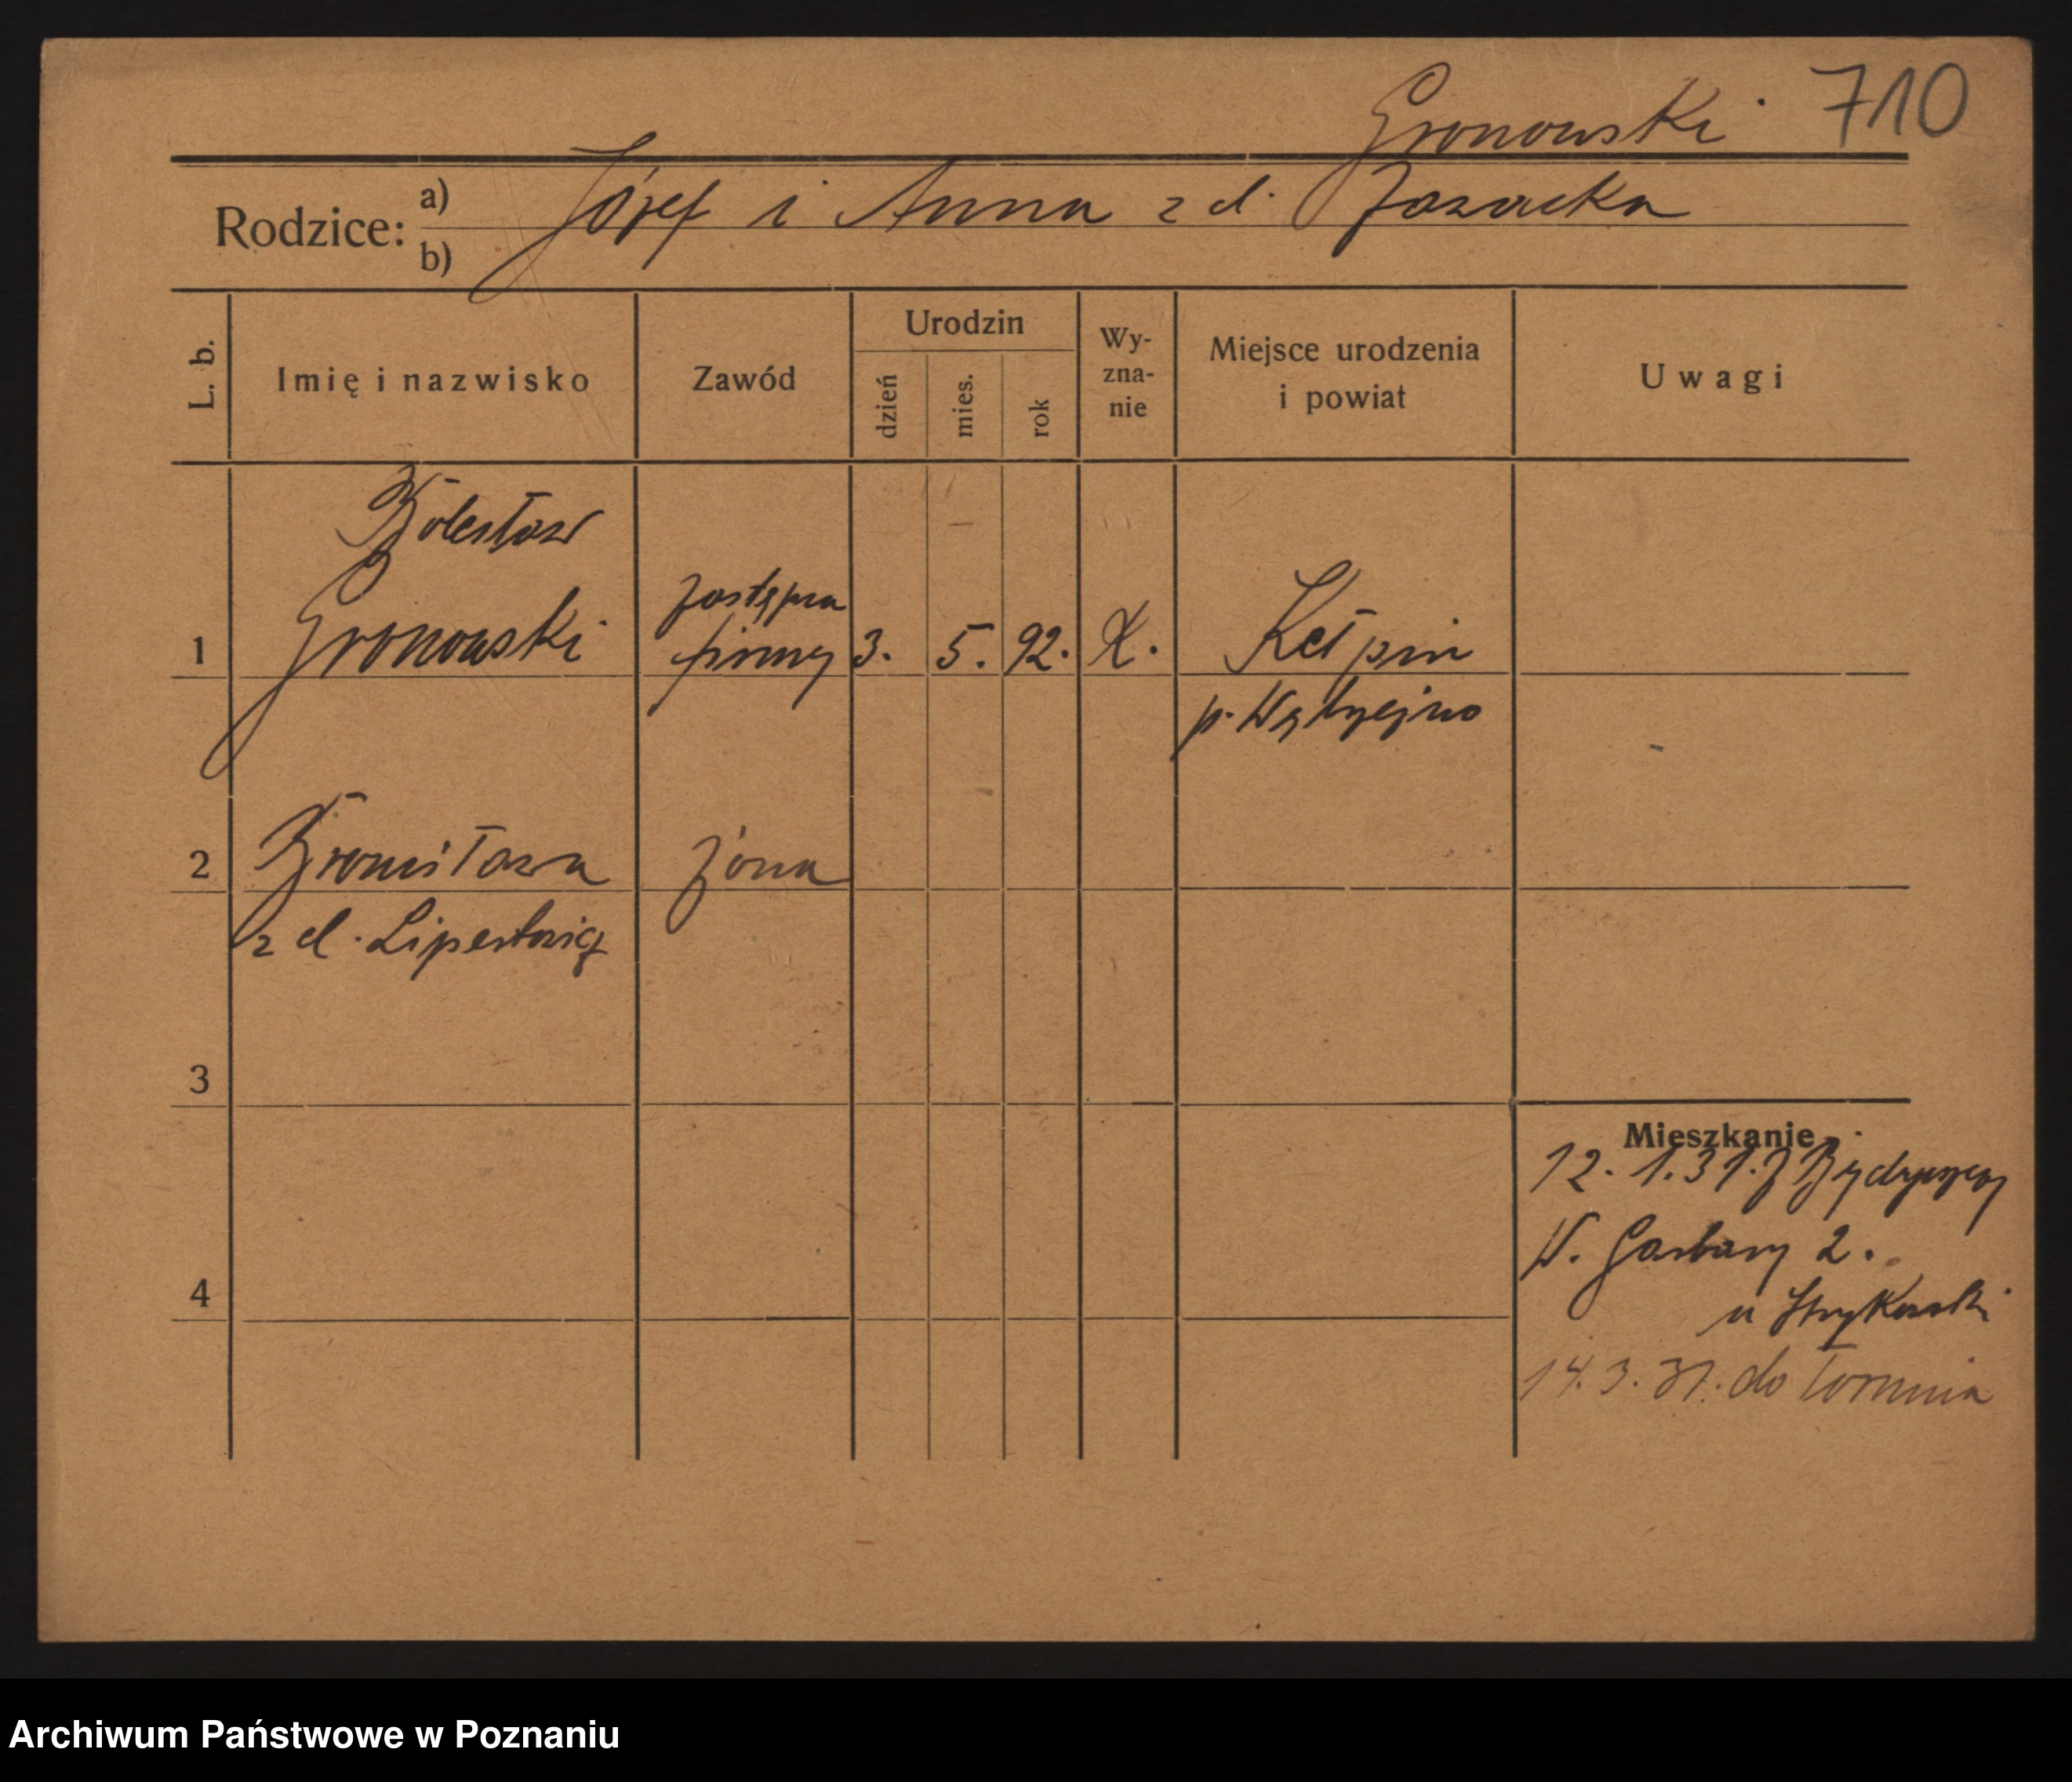 Gronowski 710
Rodzice:
a) Józef i Anna z d.
b)
L. b.
Imię i nazwisko
Zawód
Urodzin
dzień
mies.
rok
Wy-
zna-
nie
Miejsce urodzenia
i powiat
Uwagi
Bolesław
Gronowski
zastępca
firmy
1
3. 5. 92.
Kiełpin
p. Wąbrzeźno
2 Bronisława żona
z d.
3
4
Mieszkanie
12. 1. 31. z Bydgoszczy
W. Garbary 2.
u
14. 3. 31. do Torunia
Archiwum Państwowe w Poznaniu